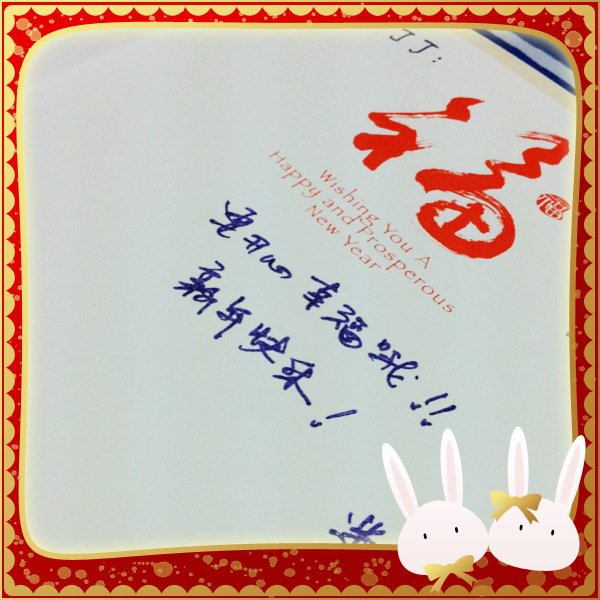 丁丁:
福
福
Wishing You A
Happy and Prosperous
New Year
要开心幸福哦!!
新年快乐!